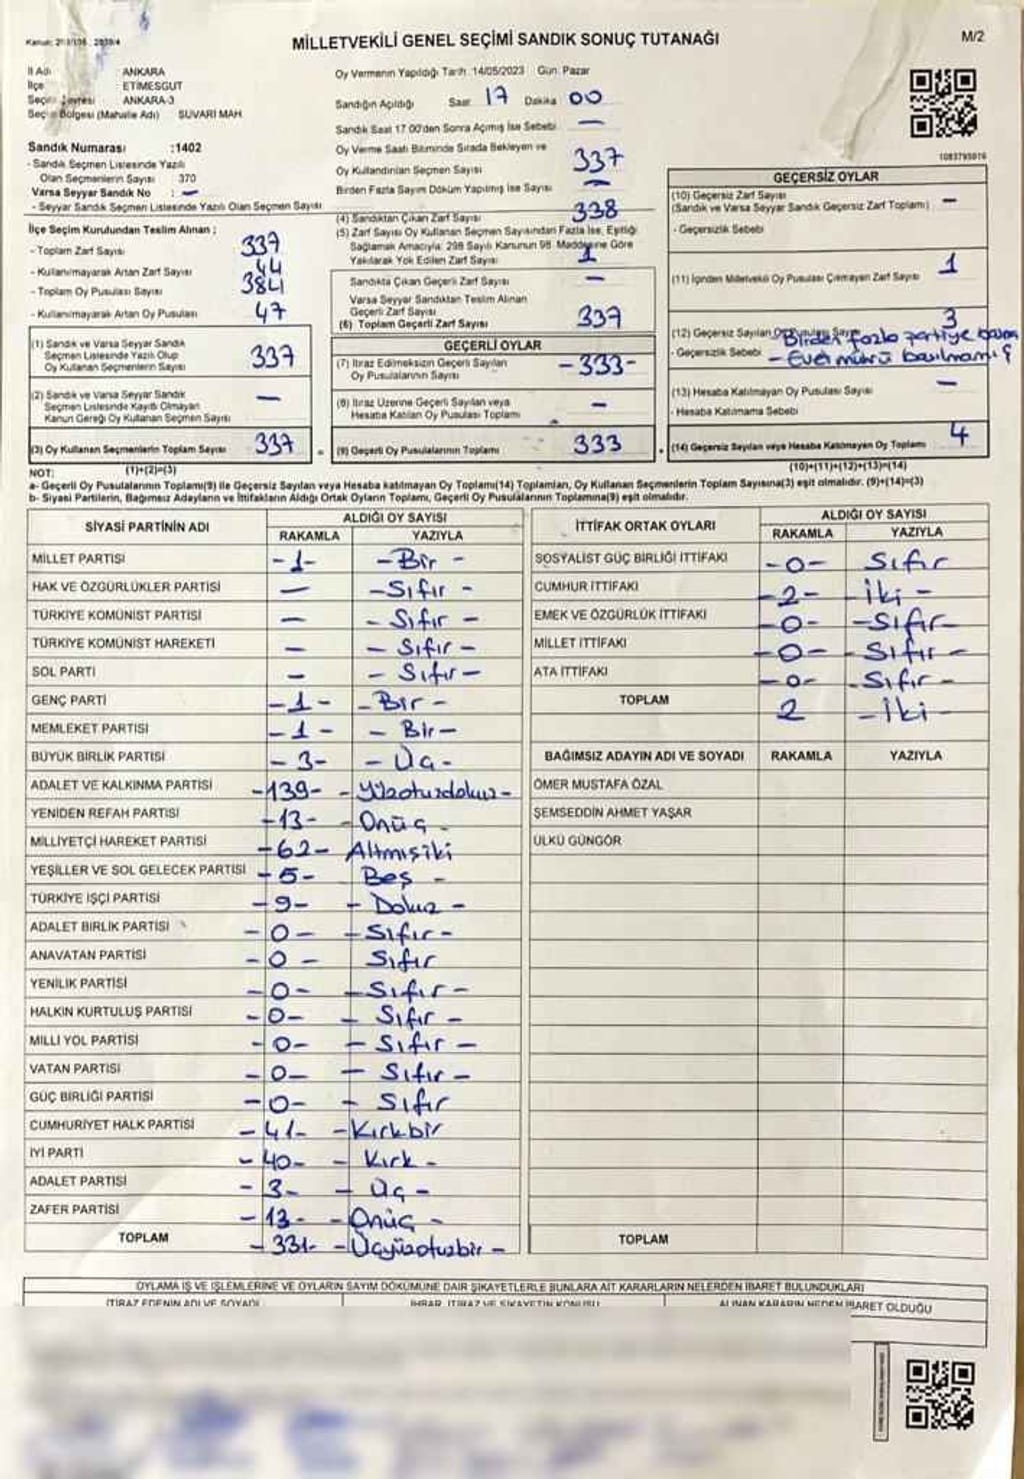 MİLLETVEKİLİ GENEL SEÇİMİ SANDIK SONUÇ TUTANAĞI
M/2
İl Adı : ANKARA
İlçe : ETİMESGUT
Seçim Çevresi : ANKARA-3
Seçim Bölgesi (Mahalle Adı) SÜVARİ MAH.
Sandık Numarası :1402
- Sandık Seçmen Listesinde Yazılı
Olan Seçmenlerin Sayısı 370
Varsa Seyyar Sandık No : —
- Seyyar Sandık Seçmen Listesinde Yazılı Olan Seçmen Sayısı
İlçe Seçim Kurulundan Teslim Alınan ;
- Toplam Zarf Sayısı 337
- Kullanılmayarak Artan Zarf Sayısı 44
- Toplam Oy Pusulası Sayısı 384
- Kullanılmayarak Artan Oy Pusulası 47
(1) Sandık ve Varsa Seyyar Sandık
Seçmen Listesinde Yazılı Olup
Oy Kullanan Seçmenlerin Sayısı 337
(2) Sandık ve Varsa Seyyar Sandık
Seçmen Listesinde Kayıtlı Olmayan
Kanun Gereği Oy Kullanan Seçmen Sayısı —
(3) Oy Kullanan Seçmenlerin Toplam Sayısı 337
(1)+(2)=(3)
Oy Vermenin Yapıldığı Tarih :14/05/2023 Gün: Pazar
Sandığın Açıldığı Saat 17 Dakika 00
Sandık Saat 17.00'den Sonra Açılmış İse Sebebi —
Oy Verme Saati Bitiminde Sırada Bekleyen ve
Oy Kullandırılan Seçmen Sayısı 337
Birden Fazla Sayım Döküm Yapılmış İse Sayısı —
(4) Sandıktan Çıkan Zarf Sayısı 338
(5) Zarf Sayısı Oy Kullanan Seçmen Sayısından Fazla İse, Eşitliği
Sağlamak Amacıyla; 298 Sayılı Kanunun 98. Maddesine Göre
Yakılarak Yok Edilen Zarf Sayısı 1
Sandıkta Çıkan Geçerli Zarf Sayısı —
Varsa Seyyar Sandıktan Teslim Alınan
Geçerli Zarf Sayısı
(6) Toplam Geçerli Zarf Sayısı 337
GEÇERLİ OYLAR
(7) İtiraz Edilmeksizin Geçerli Sayılan
Oy Pusulalarının Sayısı -333-
(8) İtiraz Üzerine Geçerli Sayılan veya
Hesaba Katılan Oy Pusulası Toplamı —
(9) Geçerli Oy Pusulalarının Toplamı 333
1083795016
GEÇERSİZ OYLAR
(10) Geçersiz Zarf Sayısı —
(Sandık ve Varsa Seyyar Sandık Geçersiz Zarf Toplamı)
- Geçersizlik Sebebi
(11) İçinden Milletvekili Oy Pusulası Çıkmayan Zarf Sayısı 1
(12) Geçersiz Sayılan Oy Pusulası Sayısı 3
Birden fazla partiye basma
- Geçersizlik Sebebi - Evet mührü basılmamış
(13) Hesaba Katılmayan Oy Pusulası Sayısı —
- Hesaba Katılmama Sebebi
(14) Geçersiz Sayılan veya Hesaba Katılmayan Oy Toplamı 4
(10)+(11)+(12)+(13)=(14)
NOT:
a- Geçerli Oy Pusulalarının Toplamı(9) ile Geçersiz Sayılan veya Hesaba katılmayan Oy Toplamı(14) Toplamları, Oy Kullanan Seçmenlerin Toplam Sayısına(3) eşit olmalıdır. (9)+(14)=(3)
b- Siyasi Partilerin, Bağımsız Adayların ve İttifakların Aldığı Ortak Oyların Toplamı, Geçerli Oy Pusulalarının Toplamına(9) eşit olmalıdır.
SİYASİ PARTİNİN ADI
ALDIĞI OY SAYISI
RAKAMLA YAZIYLA
MİLLET PARTİSİ -1- -Bir -
HAK VE ÖZGÜRLÜKLER PARTİSİ — -Sıfır -
TÜRKİYE KOMÜNİST PARTİSİ — - Sıfır -
TÜRKİYE KOMÜNİST HAREKETİ — - Sıfır -
SOL PARTİ — - Sıfır -
GENÇ PARTİ -1- -Bir -
MEMLEKET PARTİSİ -1- - Bir -
BÜYÜK BİRLİK PARTİSİ - 3- - Üç -
ADALET VE KALKINMA PARTİSİ -139- - Yüzotuzdokuz -
YENİDEN REFAH PARTİSİ -13- - Onüç -
MİLLİYETÇİ HAREKET PARTİSİ -62- Altmışiki
YEŞİLLER VE SOL GELECEK PARTİSİ - 5- Beş -
TÜRKİYE İŞÇİ PARTİSİ -9- - Dokuz -
ADALET BİRLİK PARTİSİ -0- - Sıfır -
ANAVATAN PARTİSİ -0- Sıfır
YENİLİK PARTİSİ -0- - Sıfır -
HALKIN KURTULUŞ PARTİSİ -0- - Sıfır -
MİLLİ YOL PARTİSİ -0- - Sıfır -
VATAN PARTİSİ -0- - Sıfır -
GÜÇ BİRLİĞİ PARTİSİ -0- - Sıfır
CUMHURİYET HALK PARTİSİ -41- -Kırkbir
İYİ PARTİ -40- - Kırk -
ADALET PARTİSİ -3- - Üç -
ZAFER PARTİSİ -13- -Onüç -
TOPLAM -331- -Üçyüzotuzbir -
İTTİFAK ORTAK OYLARI
ALDIĞI OY SAYISI
RAKAMLA YAZIYLA
SOSYALİST GÜÇ BİRLİĞİ İTTİFAKI -0- Sıfır
CUMHUR İTTİFAKI -2- -İki -
EMEK VE ÖZGÜRLÜK İTTİFAKI -0- -Sıfır-
MİLLET İTTİFAKI -0- - Sıfır -
ATA İTTİFAKI -0- - Sıfır -
TOPLAM 2 -İki-
BAĞIMSIZ ADAYIN ADI VE SOYADI RAKAMLA YAZIYLA
ÖMER MUSTAFA ÖZAL
ŞEMSEDDİN AHMET YAŞAR
ÜLKÜ GÜNGÖR
TOPLAM
OYLAMA İŞ VE İŞLEMLERİNE VE OYLARIN SAYIM DÖKÜMÜNE DAİR ŞİKAYETLERLE BUNLARA AİT KARARLARIN NELERDEN İBARET BULUNDUKLARI
İTİRAZ EDENİN ADI VE SOYADI İHBAR, İTİRAZ VE ŞİKAYETİN KONUSU ALINAN KARARIN NEDEN İBARET OLDUĞU